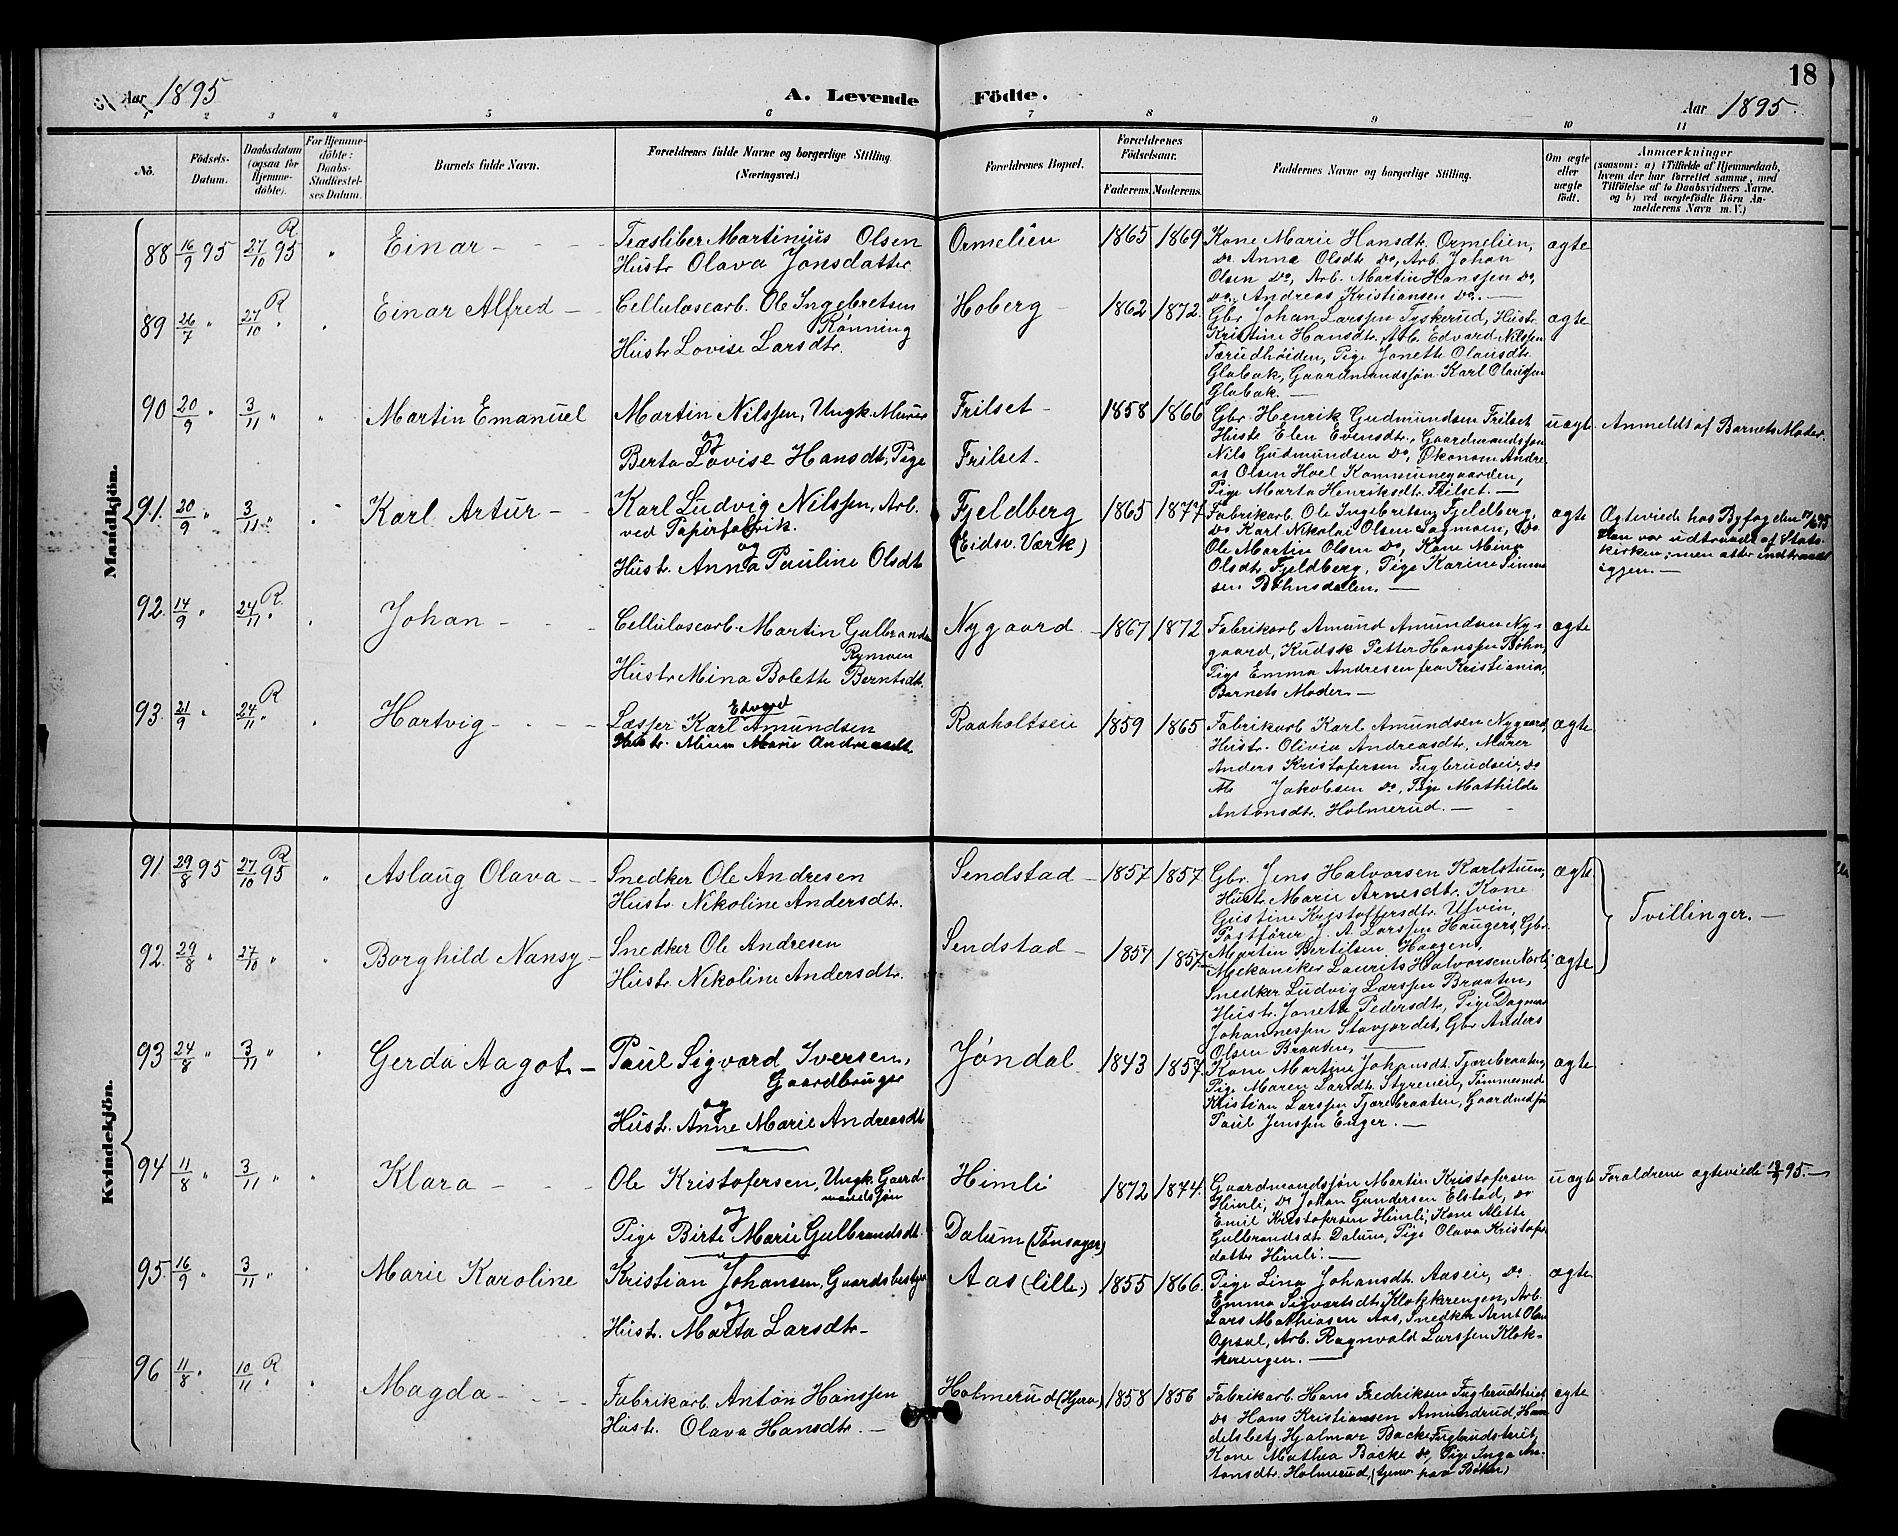 18
Aar 1895
A. Levende Födte.
Aar 1895.
1 2 3 4 5 6 7 8 9 10 11
No.
Födsels-Datum.
Daabsdatum (ogsaa for Hjemmedöbte).
For Hjemmedöbte: Daabs-Stadfæstelses Datum.
Barnets fulde Navn.
Forældrenes fulde Navne og borgerlige Stilling.
(Næringsvei.)
Forældrenes Bopæl.
Forældrenes Födselsaar.
Faderens. Moderens.
Faddernes Navne og borgerlige Stilling.
Om ægte eller uægte födt.
Anmærkninger
(saasom: a) i Tilfælde af Hjemmedaab, hvem der har forrettet samme, med Tilföielse af to Daabsvidners Navne, og b) ved uægtefödte Börn Anmelderens Navn m. V.)
Mandkjön.
88 16/9 95 27/10 95 R " Einar
Træsliber Martinius Olsen
Hustr. Olava Jonsdatter.
Ormelien 1865 1869
Kone Marie Hansdtr. Ormelien,
Do Anna Olsdtr Do, Arb. Johan
Olsen Do, Arb. Martin Hanssen Do,
Do. Andreas Kristiansen Do. —
ægte
89 26/7 " 27/10 R " " Einar Alfred
Cellulosearb. Ole Ingebretsen
Rønning
Hustr. Lovise Larsdtr.
Hoberg 1862 1872.
Gbr. Johan Larssen Tyskerud, Hustr.
Kristine Hansdtr. Arb. Edvard Nilssen
Tærudhøiden, Pige Jonette Olausdtr.
Globak, Gaardmandssøn Karl Olaussen
Globak. —
ægte
90 20/9 " 3/11 " " Martin Emanuel
Martin Nilssen, Ungk. Murer
og
Berta Lovise Hansdtr, Pige
Frilset
Frilset
1858 1866
Gbr. Henrik Gudmundsen Frilset
Hustr. Elen Evensdtr., Gaardmandssøn
Nils Gudmundsen Do, Økonom Andre-
as Olsen Hoel Kommunegaarden,
Pige Marta Henriksdtr. Frilset. —
uægte Anmeldt af Barnets Moder.
91. 20/9 " 3/11 " " Karl Artur
Karl Ludvig Nilssen, Arb.
ved Papirfabrik.
og
Hust. Anna Pauline Olsdtr
Fjeldberg
(Eidsv. Værk)
1865 1877
Fabrikarb. Ole Ingebretsen Fjeldberg,
Do Karl Nikolai Olsen Sagmoen, Do
Ole Martin Olsen Do, Kone Mina
Olsdtr. Fjeldberg, Pige Karine Simen-
sen Bøhnsdalen. —
ægte
Ægteviede hos Byfogden
Han var udtraadt af Stats-
kirken; men atter indtraadt
igjen. —
92. 14/9 " 24/11 R " Johan
Cellulosearb. Martin Gulbrandsen
Rymoen
Hustr. Mina Bolette Berntsdtr.
Nygaard 1867 1872
Fabrikarb. Amund Amundsen Ny-
gaard, Kudsk Petter Hanssen Bøhn,
Pige Emma Andresen fra Kristiania,
Barnets Moder. —
ægte
93. 21/9 " 24/11 R " Hartvig
Læsser Karl Edvard Amundsen
Hustr. Mina Marie Andreasdtr.
Raaholtseie 1859 1865
Fabrikarb. Karl Amundsen Nygaard,
Hustr. Olivia Andreasdtr., Murer
Anders Kristofersen Fuglerudseie, Do
M Jakobsen Do, Pige Mathilde
Antonsdtr. Holmerud. —
ægte
Kvindekjön.
91 29/8 95 27/10 95 R " Aslaug Olava
Snedker Ole Andresen
Hustr. Nikoline Andersdtr.
Sendstad 1857 1857
Gbr. Jens Halvorsen Karlstuen,
Hustr. Marie Arnesdtr. Kone
Gustine Kristoffersdtr. Ufvin,
Postfører J. A. Larssen Hauger, Gbr.
Martin Bertilsen Haagens,
ægte
Tvillinger. —
92. 29/8 " 27/10 " " Borghild Nansy
Snedker Ole Andresen
Hustr. Nikoline Andersdtr.
Sendstad 1857 1857.
Mekaniker Laurits Halvorsen Norli,
Snedker Ludvig Larssen Braaten,
Hustr. Jonette Pedersdtr., Pige Dagmar
Johannessen Stavjordet, Gbr. Anders
Olsen Braaten, —
ægte
93 24/8 " 3/11 " " Gerda Aagot
Paul Sigvard Iversen,
Gaardbruger
og
Hust. Anne Marie Andreasdtr
Jøndal 1843 1857.
Kone Martine Johansdtr. Tjærebraaten,
Pige Maren Larsdtr. Styreneie, Tømmermd
Kristian Larssen Tjærebraaten, Gaardmdssøn
Paul Jenssen Enger. —
ægte
94 11/8 " 3/11 " " Klara
Ole Kristofersen, Ungk. Gaard-
mandssøn
og
Pige Birte Marie Gulbrandsdtr.
Himli
Dalum (Tønsager)
1872 1874.
Gaardmandssøn Martin Kristofersen
Himli, Do Johan Gundersen Elstad, Do
Emil Kristofersen Himli, Kone Alette
Gulbrandsdtr. Dalum, Pige Olava Kristofers-
datter Himli. —
uægte Forældrene ægteviede 95. —
95. 16/9 " 3/11 " " Marie Karoline
Kristian Johansen, Gaardsbestyrer
og
Hustr. Marta Larsdtr.
Aas (lille) 1855 1866.
Pige Lina Johansdtr. Aaseie, Do.
Emma Sigvartsdtr. Klokkerengen, Arb.
Lars Mathiasen Aas, Snedker Arnt Olsen
Opsal, Arb. Ragnvald Larssen Klok-
kerengen. —
ægte
96 11/8 " 10/11 R " " Magda
Fabrikarb. Anton Hanssen
Hustr. Olava Hansdtr. —
Holmerud (Hjera) 1858 1856
Fabrikarb. Hans Fredriksen Fuglerudseie
Do Hans Kristiansen Amundrud, Han-
delsbetj. Hjalmar Backe Fuglerudseie,
Kone Mathea Backe Do, Pige Inga An-
tonsdtr. Holmerud, (tjener paa Bøhn)
ægte